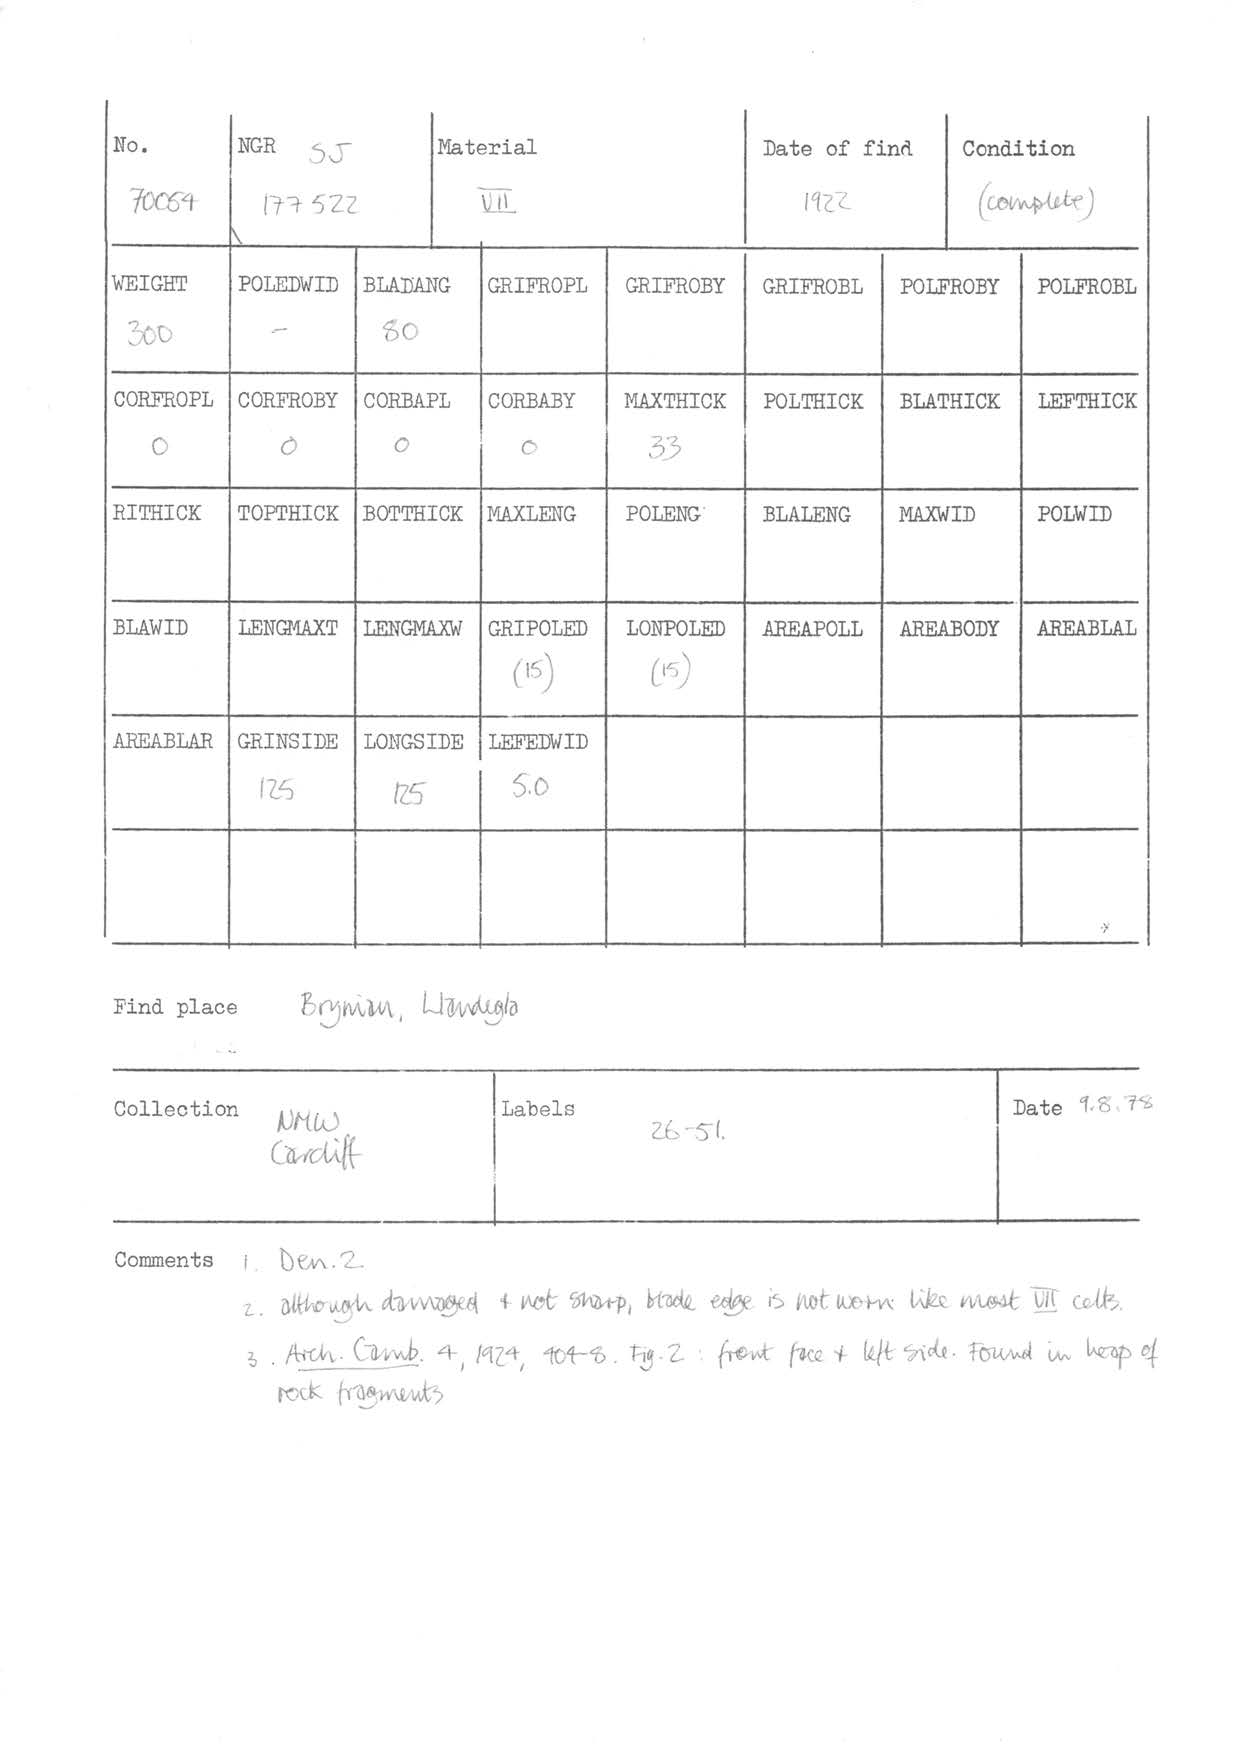 No. NGR SJ Material Date of find Condition
70064 177522 VII 1922 (complete)
WEIGHT POLEDWID BLADANG GRIFROPL GRIFROBY GRIFROBL POLFROBY POLFROBL
300 - 80
CORFROPL CORFROBY CORBAPL CORBABY MAXTHICK POLTHICK BLATHICK LEFTHICK
0 0 0 0 33
RITHICK TOPTHICK BOTTHICK MAXLENG POLENG BLALENG MAXWID POLWID
BLAWID LENGMAXT LENGMAXW GRIPOLED LONPOLED AREAPOLL AREABODY AREABLAL
(15) (15)
AREABLAR GRINSIDE LONGSIDE LEFEDWID
125 125 5.0
Find place Brynian, Llandegla
Collection Labels Date 9.8.78
NMW 26-51.
Cardiff
Comments 1. Den. 2.
2. although damaged + not sharp, blade edge is not worn like most VII celts.
3. Arch. Camb. 4, 1924, 404-8. Fig. 2 : front face + left side. Found in heap of
rock fragments